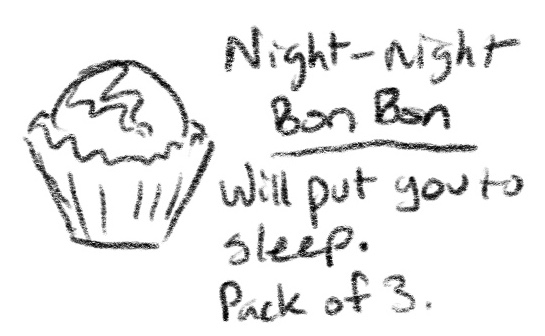 Night-Night
Bon Bon
Will put you to
sleep.
Pack of 3.